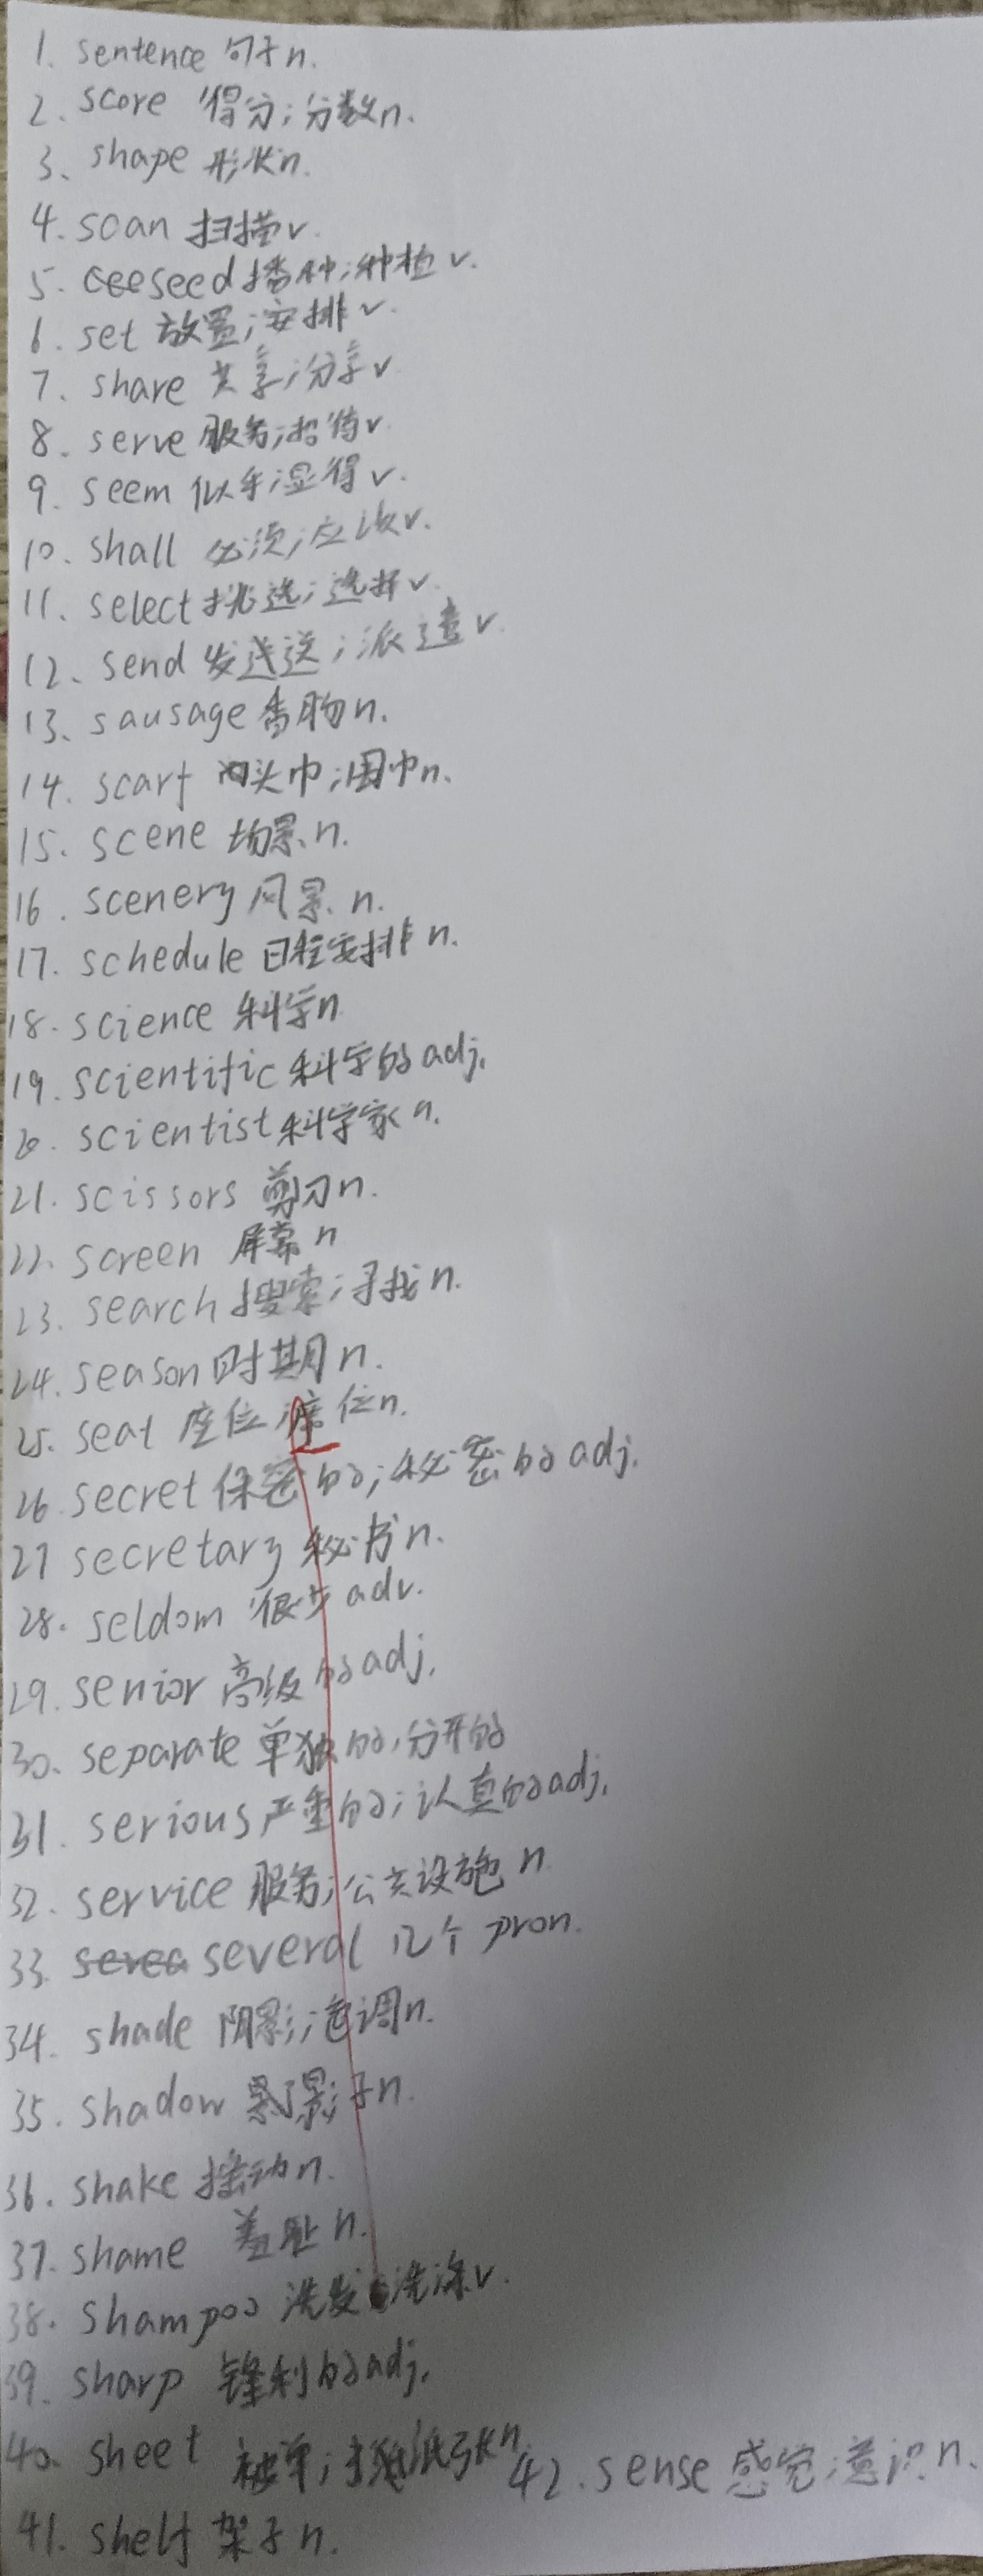 1. sentence 句子n.
2. score 得分;分数n.
3、shape 形状n.
4. scan 扫描v.
5. seed播种;种植 v.
6. set 放置;安排 v.
7、share 共享;分享v
8. serve 服务;招待v.
9. seem 似乎;显得 v.
10、shall 必须;应该v.
11、select挑选;选择v.
12、send 发送;派遣v
13、sausage 香肠n.
14. scarf 头巾;围巾n.
15. scene 场景n.
16. scenery 风景 n.
17. schedule 日程安排 n.
18. science 科学n
19. scientific 科学的adj.
20. scientist科学家 n.
21. scissors 剪刀n.
22. screen 屏幕 n
23. search 搜索;寻找n.
24. season 时期 n.
25. seat 座位;席位n.
26 secret 保密的;秘密的 adj.
27 secretary 秘书n.
28. seldom 很少adv.
29. senior 高级的adj.
30、separate 单独的;分开的
31. serious 严重的;认真的adj.
32. service 服务;公共设施 n
33. several 几个 pron.
34. shade 阴影;色调n.
35. shadow 影子n.
36. shake 摇动n.
37. shame 羞耻 n.
38. shampoo 洗发 洗涤v.
39. sharp 锋利的adj.
40. sheet 被单; 纸张n.
42. sense 感觉;意识n.
41. shelf 架子n.